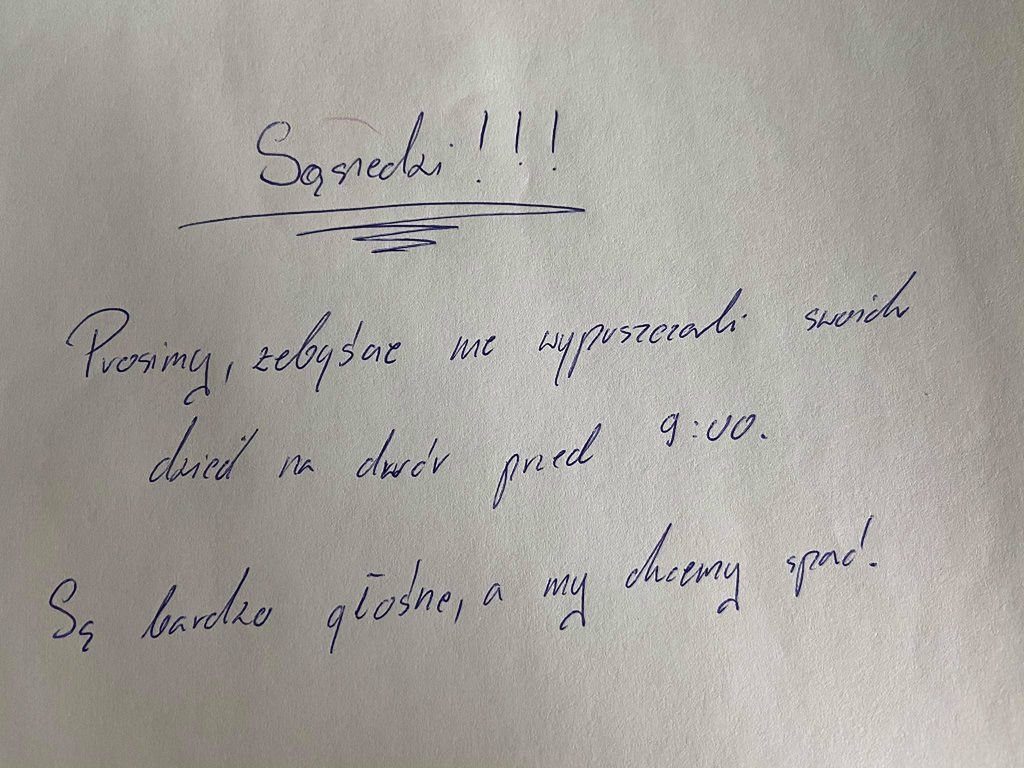 Sąsiedzi!!!
Prosimy, żebyście nie wypuszczali swoich
dzieci na dwór przed 9:00.
Są bardzo głośne, a my chcemy spać.